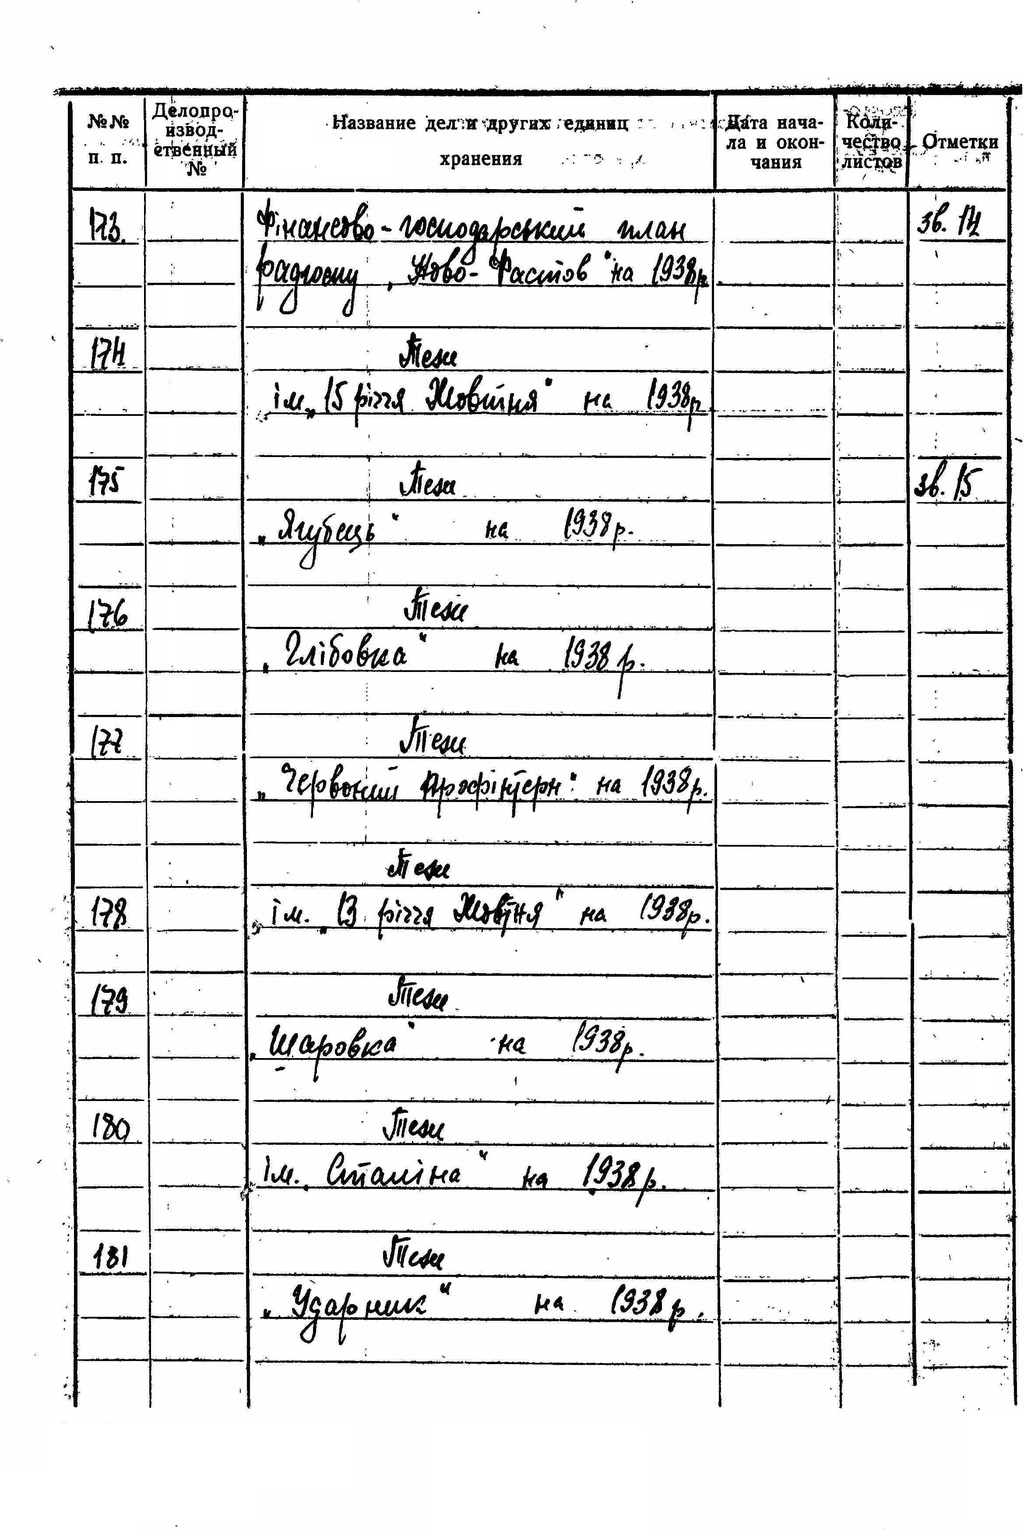 №№ п. п.
Делопро-
извод-
ственный
№
Название дел и других единиц
хранения
Дата нача-
ла и окон-
чания
Коли-
чество
листов
Отметки
173. Фінансово-господарський план зв. 14
радгоспу „Ново-Растов" на 1938р
174 Тези
ім. „15 річчя Жовтня" на 1938р
175 Тези зв. 15
„Ягубець" на 1938р.
176 Тези
„Глібовка" на 1938 р.
177 Тези
„Червоний Профінтерн" на 1938р.
Тези
178 ім. „13 річчя Жовтня" на 1938р.
179 Тези
„Шаровка" на 1938р.
180 Тези
ім. „Сталіна" на 1938р.
181 Тези
„Ударник" на 1938р.